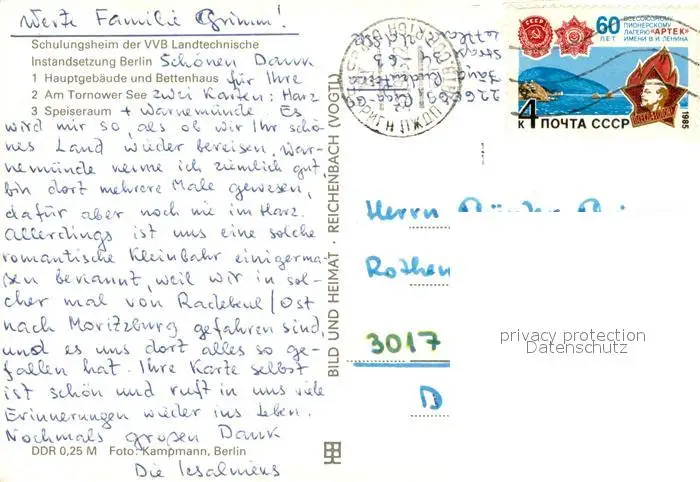 Werte Familie Grimm!
Schulungsheim der VVB Landtechnische
Instandsetzung Berlin Schönen Dank
1 Hauptgebäude und Bettenhaus für Ihre
2 Am Tornower See zwei Karten: Harz
3 Speiseraum + Warnemünde Es
wird mir so, als ob wir Ihr schö-
nes Land wieder bereisen. War-
nemünde kenne ich ziemlich gut,
bin dort mehrere Male gewesen,
dafür aber noch nie im Harz.
Allerdings ist uns eine solche
romantische Kleinbahn einigerma-
ßen bekannt, weil wir in sol-
cher mal von Radebeul/Ost
nach Moritzburg gefahren sind,
und es uns dort alles so ge-
fallen hat. Ihre Karte selbst
ist schön und ruft in uns viele
Erinnerungen wieder ins Leben.
Nochmals großen Dank
DDR 0,25 M Foto: Kampmann, Berlin
Die
BILD UND HEIMAT · REICHENBACH (VOGTL)
СССР
60 ЛЕТ
ВСЕСОЮЗНОМУ
ПИОНЕРСКОМУ
ЛАГЕРЮ "АРТЕК"
ИМЕНИ В.И.ЛЕНИНА
4 К ПОЧТА СССР
1985
Herrn
Rothen
3017
D
privacy protection
Datenschutz